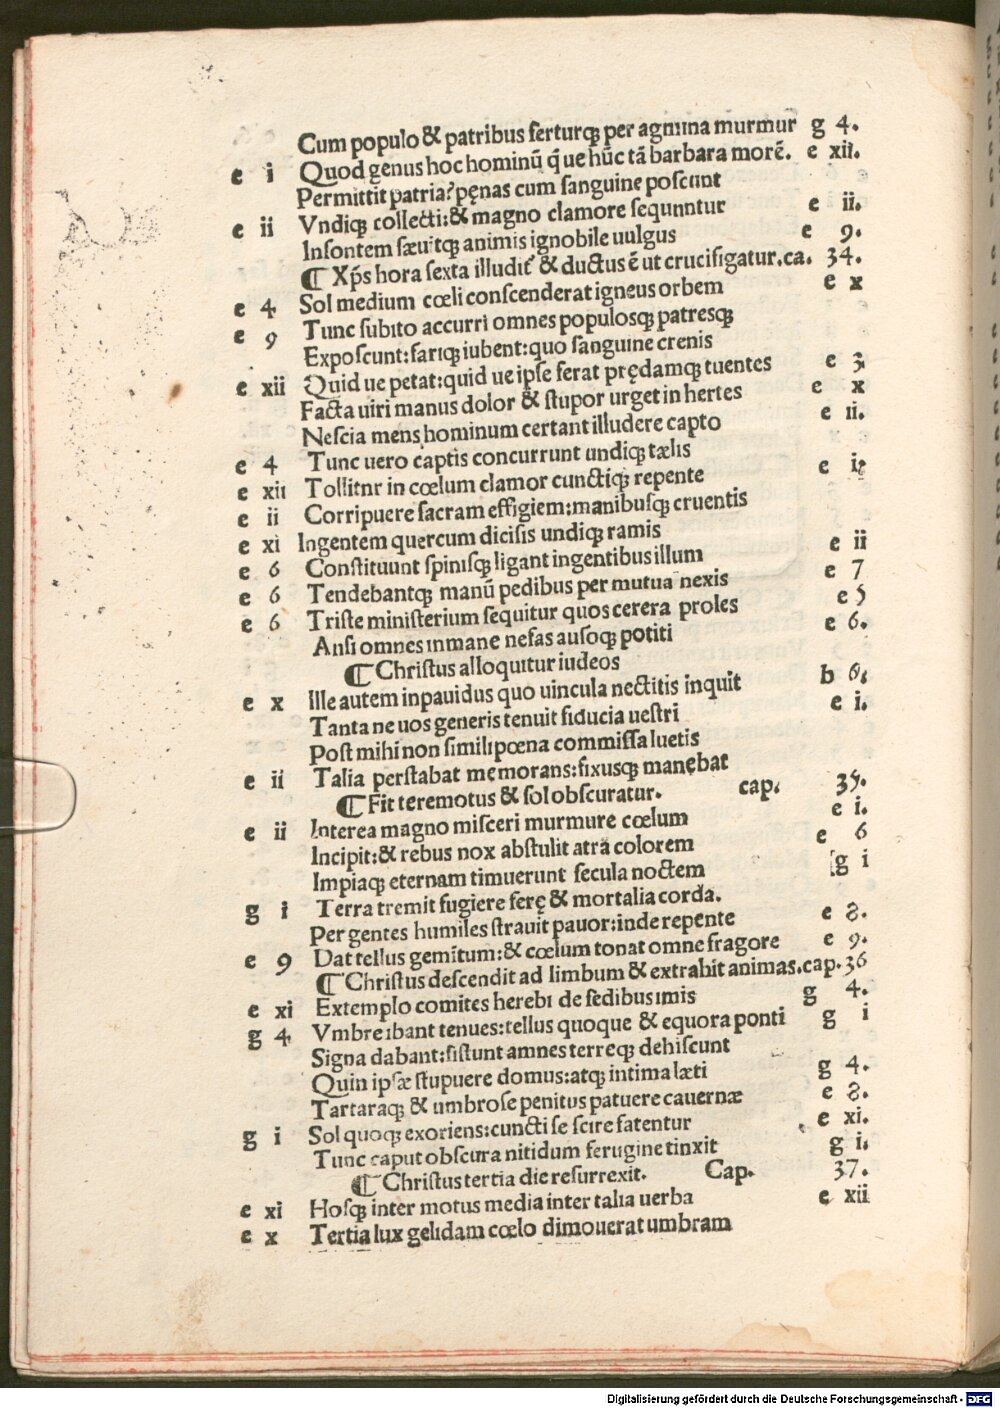 Cum populo & patribus ferturqꝫ per agmina murmur g 4.
e i Quod genus hoc hominū q̄ ue hūc tā barbara morē. e xii.
Permittit patria? pęnas cum sanguine poscunt
e ii Vndiqꝫ collecti:& magno clamore sequnntur e ii.
Insontem sæuitqꝫ animis ignobile uulgus e 9.
¶ Xp̄s hora sexta illudit̄ & ductus ē ut crucifigatur.ca. 34.
e 4 Sol medium cœli conscenderat igneus orbem e x
e 9 Tunc subito accurri omnes populosqꝫ patresqꝫ
Exposcunt:fariqꝫ iubent:quo sanguine crenis
e xii Quid ue petat:quid ue ipse ferat prędamqꝫ tuentes e 3
Facta uiri manus dolor & stupor urget in hertes e x
Nescia mens hominum certant illudere capto e ii.
e 4 Tunc uero captis concurrunt undiqꝫ tælis
e xii Tollitnr in cœlum clamor cunctiqꝫ repente e i
e ii Corripuere sacram effigiem:manibusqꝫ cruentis
e xi Ingentem quercum dicisis undiqꝫ ramis
e 6 Constituunt spinisqꝫ ligant ingentibus illum e ii
e 6 Tendebantqꝫ manū pedibus per mutua nexis e 7
e 6 Triste ministerium sequitur quos cerera proles e 5
Ansi omnes inmane nefas ausoqꝫ potiti e 6.
¶ Christus alloquitur iudeos
e x Ille autem inpauidus quo uincula nectitis inquit b 6.
Tanta ne uos generis tenuit fiducia uestri e i.
Post mihi non simili pœna commissa luetis
e ii Talia perstabat memorans:fixusqꝫ manębat
¶ Fit teremotus & sol obscuratur. cap. 35.
e ii Interea magno misceri murmure cœlum e i.
Incipit:& rebus nox abstulit atrā colorem e 6
Impiaqꝫ eternam timuerunt secula noctem [g i
g i Terra tremit fugiere ferę & mortalia corda.
Per gentes humiles stravit pavor:inde repente e 8.
e 9 Dat tellus gemitum:& cœlum tonat omne fragore e 9.
¶ Christus descendit ad limbum & extrahit animas.cap.36
e xi Extemplo comites herebi de sedibus imis g 4.
g 4 Vmbre ibant tenues:tellus quoque & equora ponti g i
Signa dabant:sistunt amnes terreqꝫ dehiscunt
Quin ipsæ stupuere domus:atqꝫ intima læti g 4.
Tartaraqꝫ & umbrose penitus patuere cauernæ e 8.
g i Sol quoqꝫ exoriens:cuncti se scire fatentur e xi.
Tunc caput obscura nitidum ferugine tinxit g i.
¶ Christus tertia die resurrexit. Cap. 37.
e xi Hosqꝫ inter motus media inter talia uerba e xii
e x Tertia lux gelidam cœlo dimouerat umbram
Digitalisierung gefördert durch die Deutsche Forschungsgemeinschaft - DFG